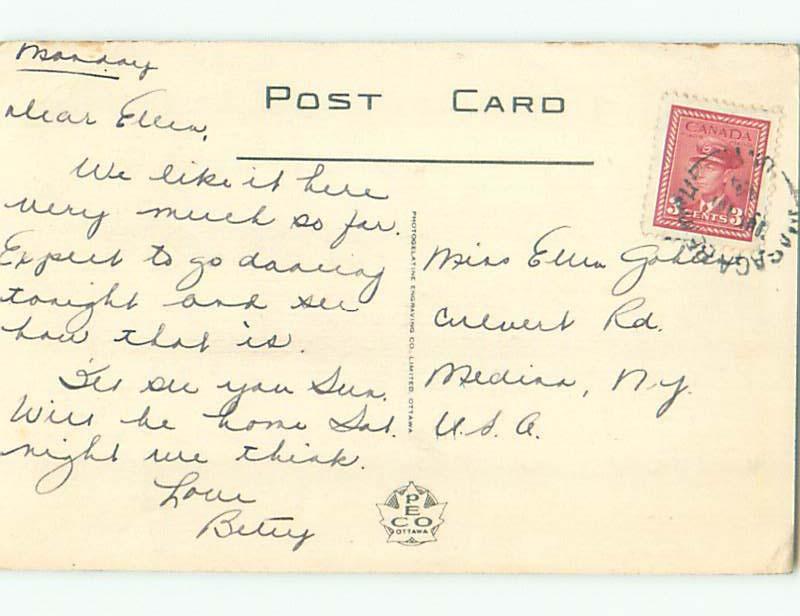 Monday
POST CARD
Dear Ellen,
We like it here
very much so far.
Expect to go dancing
tonight and see
how that is.
Will see you Sun.
Will be home Sat.
night we think.
Love
Betty
PHOTOGELATINE ENGRAVING CO. LIMITED. OTTAWA
Miss Ellen
Culvert Rd.
Medina, N.Y.
U.S.A.
CANADA
3 CENTS 3
PECO
OTTAWA